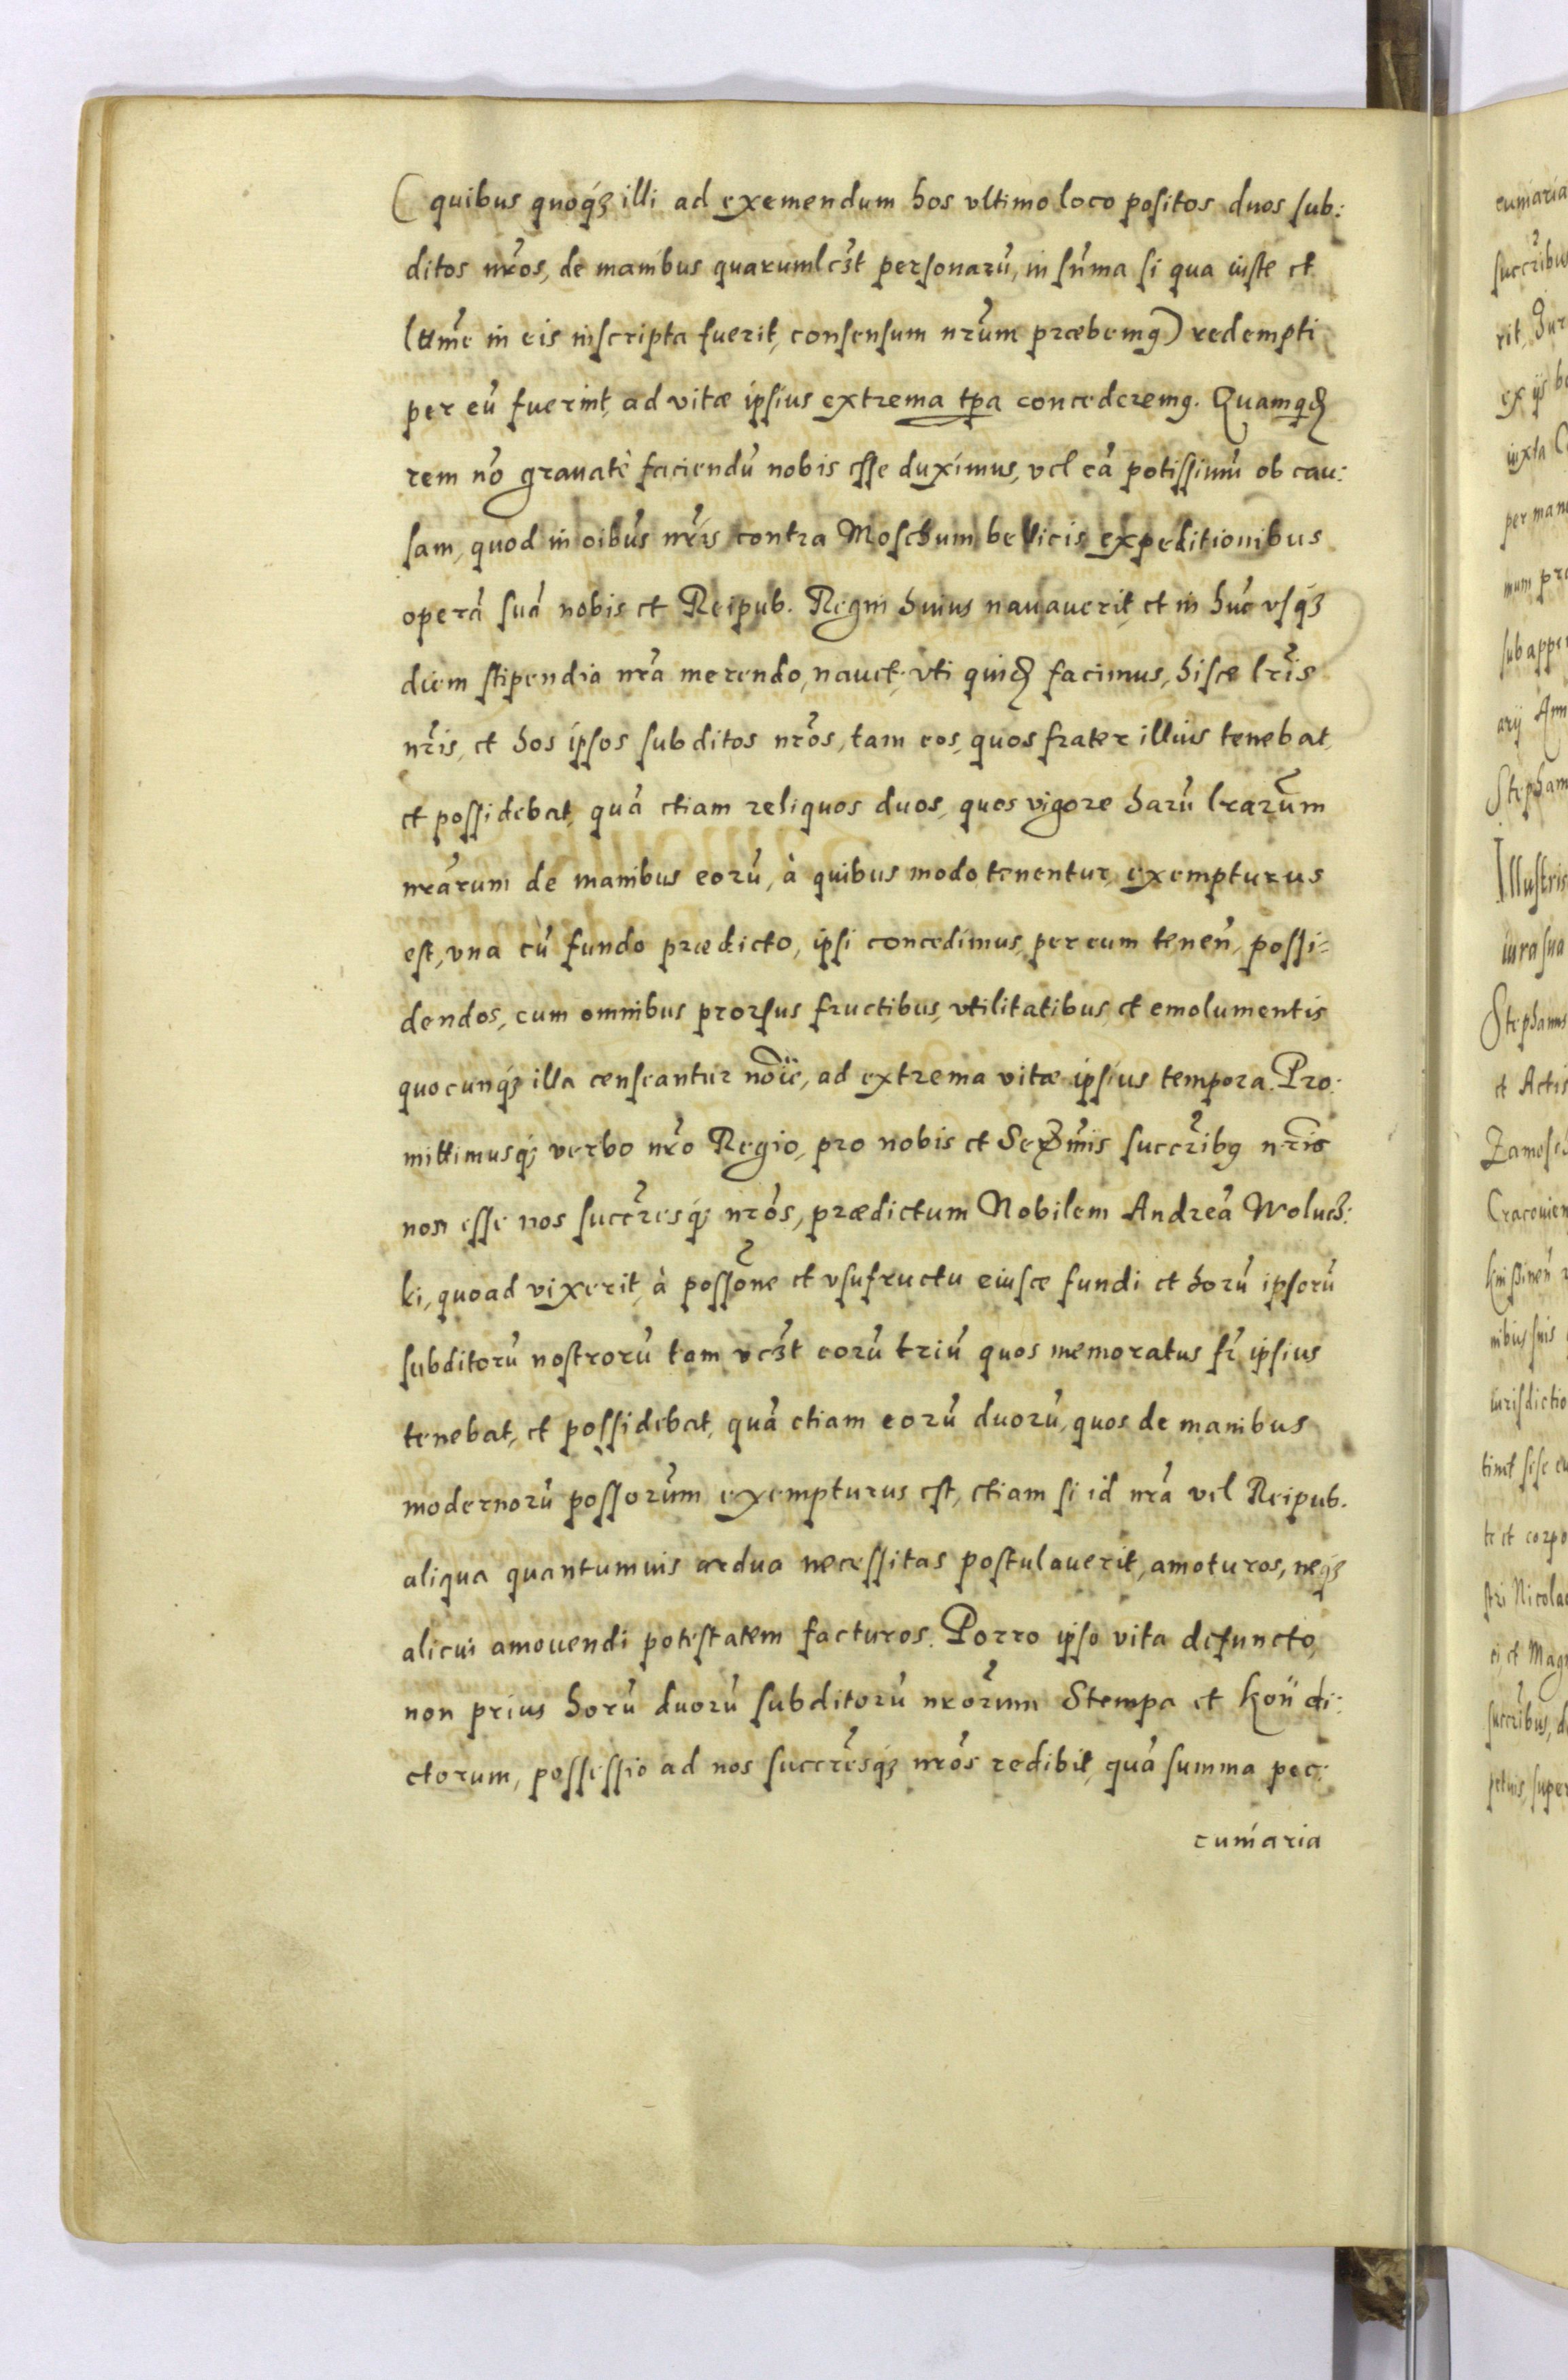 ( quibus quoq́ꝫ illi ad exemendum hos vltimo loco positos duos sub:
ditos nr̃os, de manibus quarumlcꝫt personarũ, in sũma si qua iuste et
lttm̃e in eis inscripta fuerit, consensum nr̃um præbemꝰ) redempti
per eũ fuerint, ad vitæ ipsius extrema tp̃a concederemꝰ. Quamqꝫ
rem nõ grauatè faciendũ nobis esse duximus, vel eã potissimũ ob cau:
sam, quod in oib̃us nr̃is contra Moschum bellicis expeditionibus
operã suã nobis et Reipub. Regni huius nauauerit, et in hũc vsq́ꝫ
diem stipendia nr̃a merendo, nauet, vti quidẽ facimus, hisce lr̃is
nr̃is, et hos ipsos subditos nr̃os, tam eos, quos frater illius tenebat,
et possidebat, quã etiam reliquos duos, quos vigore harũ lr̃arum
nr̃arum de manibus eorũ, à quibus modo tenentur, exempturus
est, vna cũ fundo prædicto, ipsi concedimus, per eum teneñ, possi=
dendos, cum omnibus prorsus fructibus, vtilitatibus, et emolumentis
quocunq́ꝫ illa censeantur nõie, ad extrema vitæ ipsius tempora. Pro:
mittimusq́ꝫ verbo nr̃o Regio, pro nobis et Serm̃is succr̃ibꝰ nr̃is
non esse nos succr̃esq́ꝫ nr̃os, prædictum Nobilem Andreã Woluch:
ki, quoad vixerit, à possõne et vsufructu eiusce fundi et horũ ipsorũ
subditorũ nostrorũ tam vcꝫt eorũ triũ quos memoratus fr̃ ipsius
tenebat, et possidebat, quã etiam eorũ duorũ, quos de manibus
modernorũ possor̃um exempturus est, etiam si id nr̃a vel Reipub.
aliqua quantumuis ardua necessitas postulauerit, amoturos, neq́ꝫ
alicui amouendi potestatem facturos. Porro ipso vita defuncto,
non prius horũ duorũ subditorũ nr̃orum Stempa et Koñ di:
ctorum, possessio ad nos succr̃esq́ꝫ nr̃os redibit, quã summa pec:
cuniaria